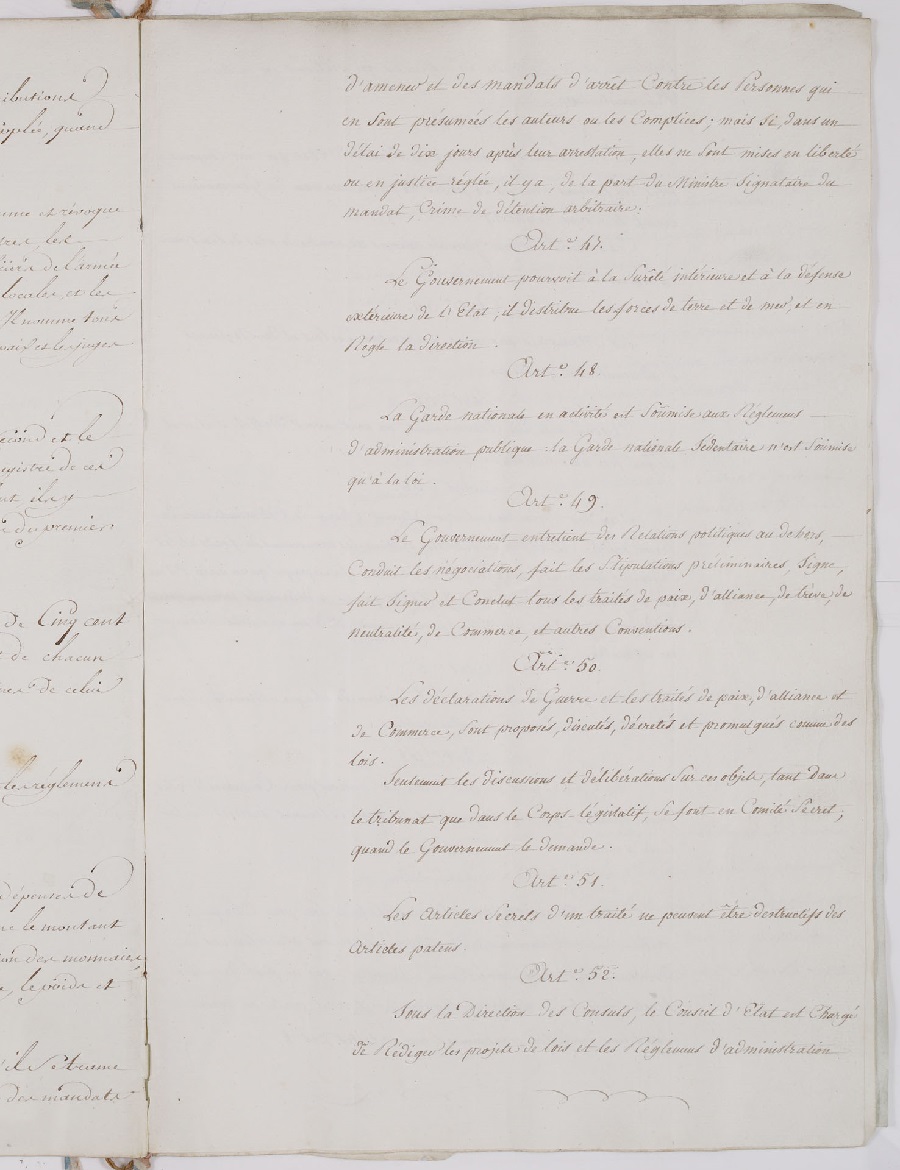 ributions
quand
nomme et révoque
tres, les
ciers de l'armée
locales, et les
Il nomme tous
paix et les juges
second et le
registre de ces
ils y
du premier
de Cinq cent
de chacun
de celui
le réglement
dépenses de
le montant
des monnaies
, le poids et
s'il Se trame
des mandats
d'amener et des mandats d'arrêt Contre les Personnes qui
en Sont présumées les auteurs ou les Complices; mais Si, dans un
délai de dix jours après leur arrestation, elles ne Sont mises en liberté
ou en justice réglée, il y a, de la part du Ministre Signataire du
mandat, Crime de détention arbitraire.
Art.e 47.
Le Gouvernement pourvoit à la Sureté intérieure et à la défense
extérieure de l'Etat; il distribue les forces de terre et de mer, et en
Régle la direction.
Art.e 48.
La Garde nationale en activité est Soumise aux Réglemens
d'administration publique : la Garde nationale Sédentaire n'est Soumise
qu'à la loi.
Art.e 49.
Le Gouvernement entretient des Relations politiques au dehors,
Conduit les négociations, fait les Stipulations préliminaires, Signe,
fait Signer et Conclut tous les traités de paix, d'alliance, de trève, de
neutralité, de Commerce, et autres Conventions.
Art.e 50.
Les déclarations de Guerre et les traités de paix, d'alliance et
de Commerce, Sont proposés, discutés, décretés et promulgués comme des
lois.
Seulement les discussions et délibérations Sur ces objets, tant dans
le tribunat que dans le Corps législatif, Se font en Comité Secret;
quand le Gouvernement le demande.
Art.e 51.
Les Articles Secrets d'un traité ne peuvent être destructifs des
Articles patens.
Art.e 52.
Sous la Direction des Consuls, le Conseil d'Etat est Chargé
de Rédiger les projets de lois et les Réglemens d'administration